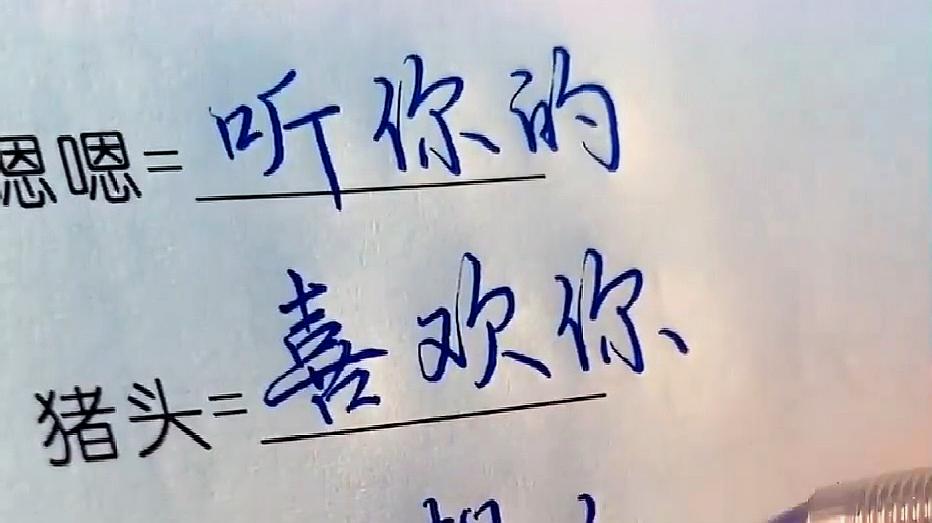 恩嗯=听你的
猪头=喜欢你